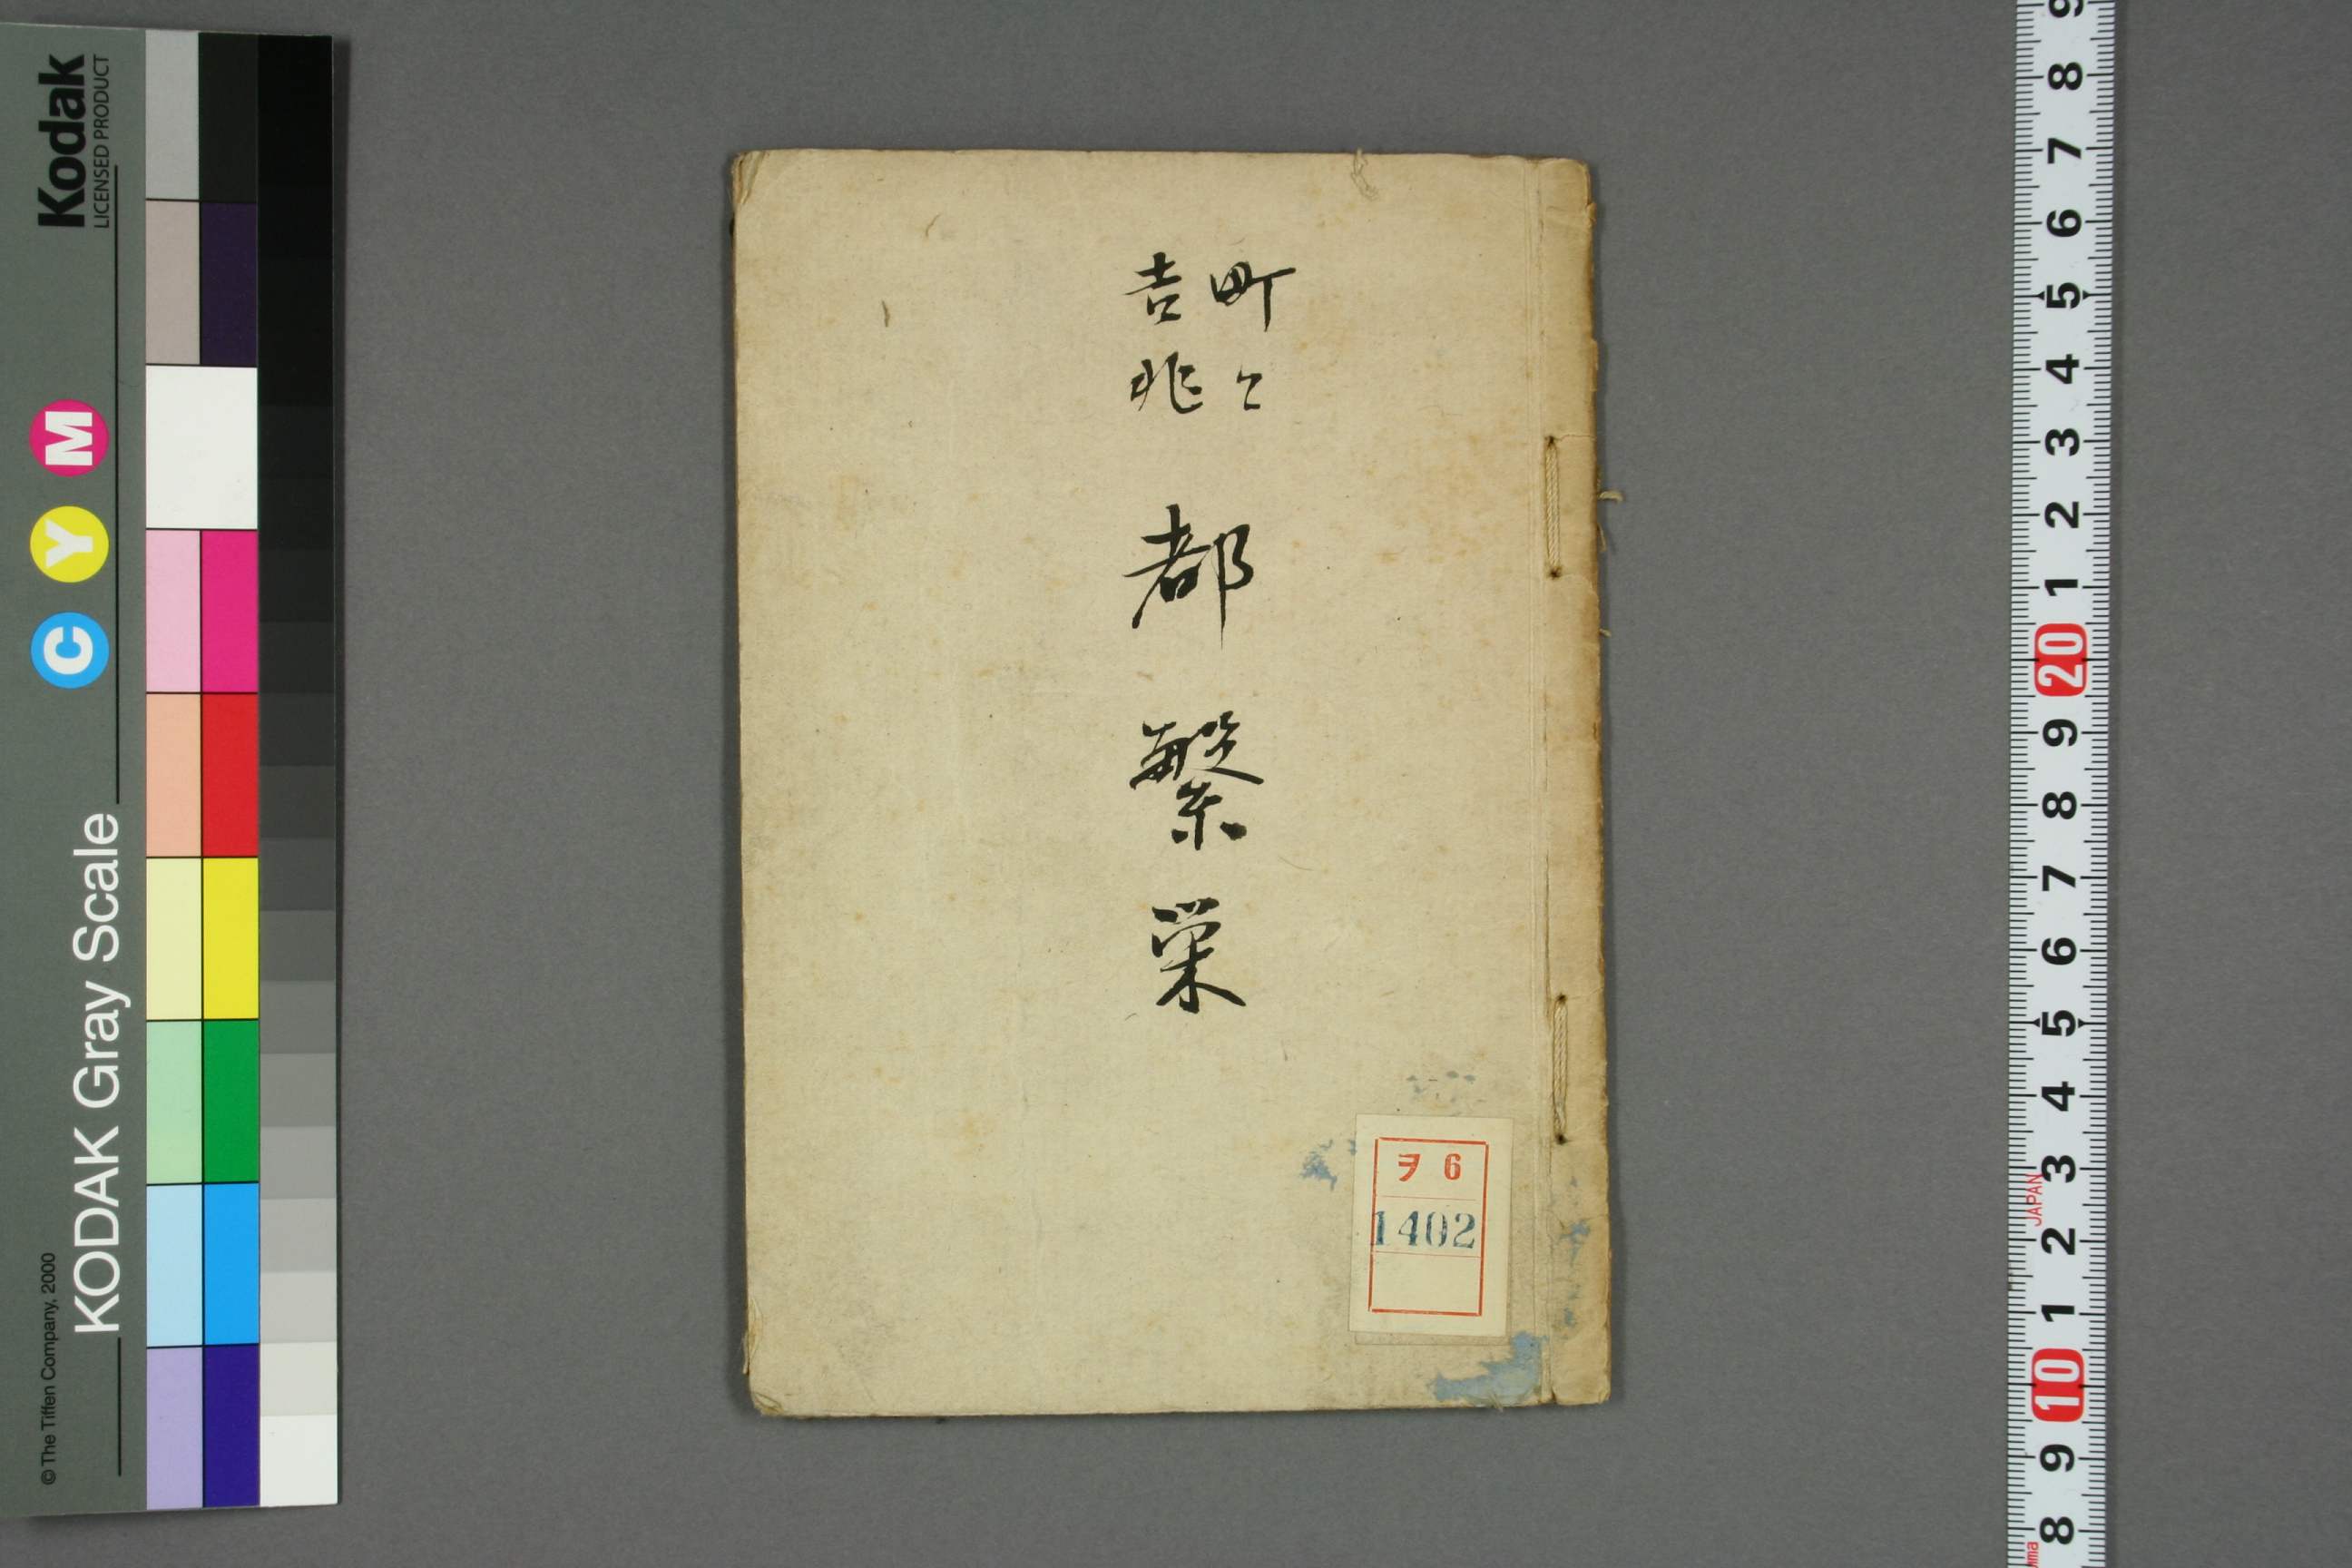 町々
吉兆
都繁栄
ヲ 6
1402
Kodak
LICENSED PRODUCT
C Y M
KODAK Gray Scale
© The Tiffen Company, 2000
9 8 7 6 5 4 3 2 1 20 9 8 7 6 5 4 3 2 1 10 9 8
JAPAN